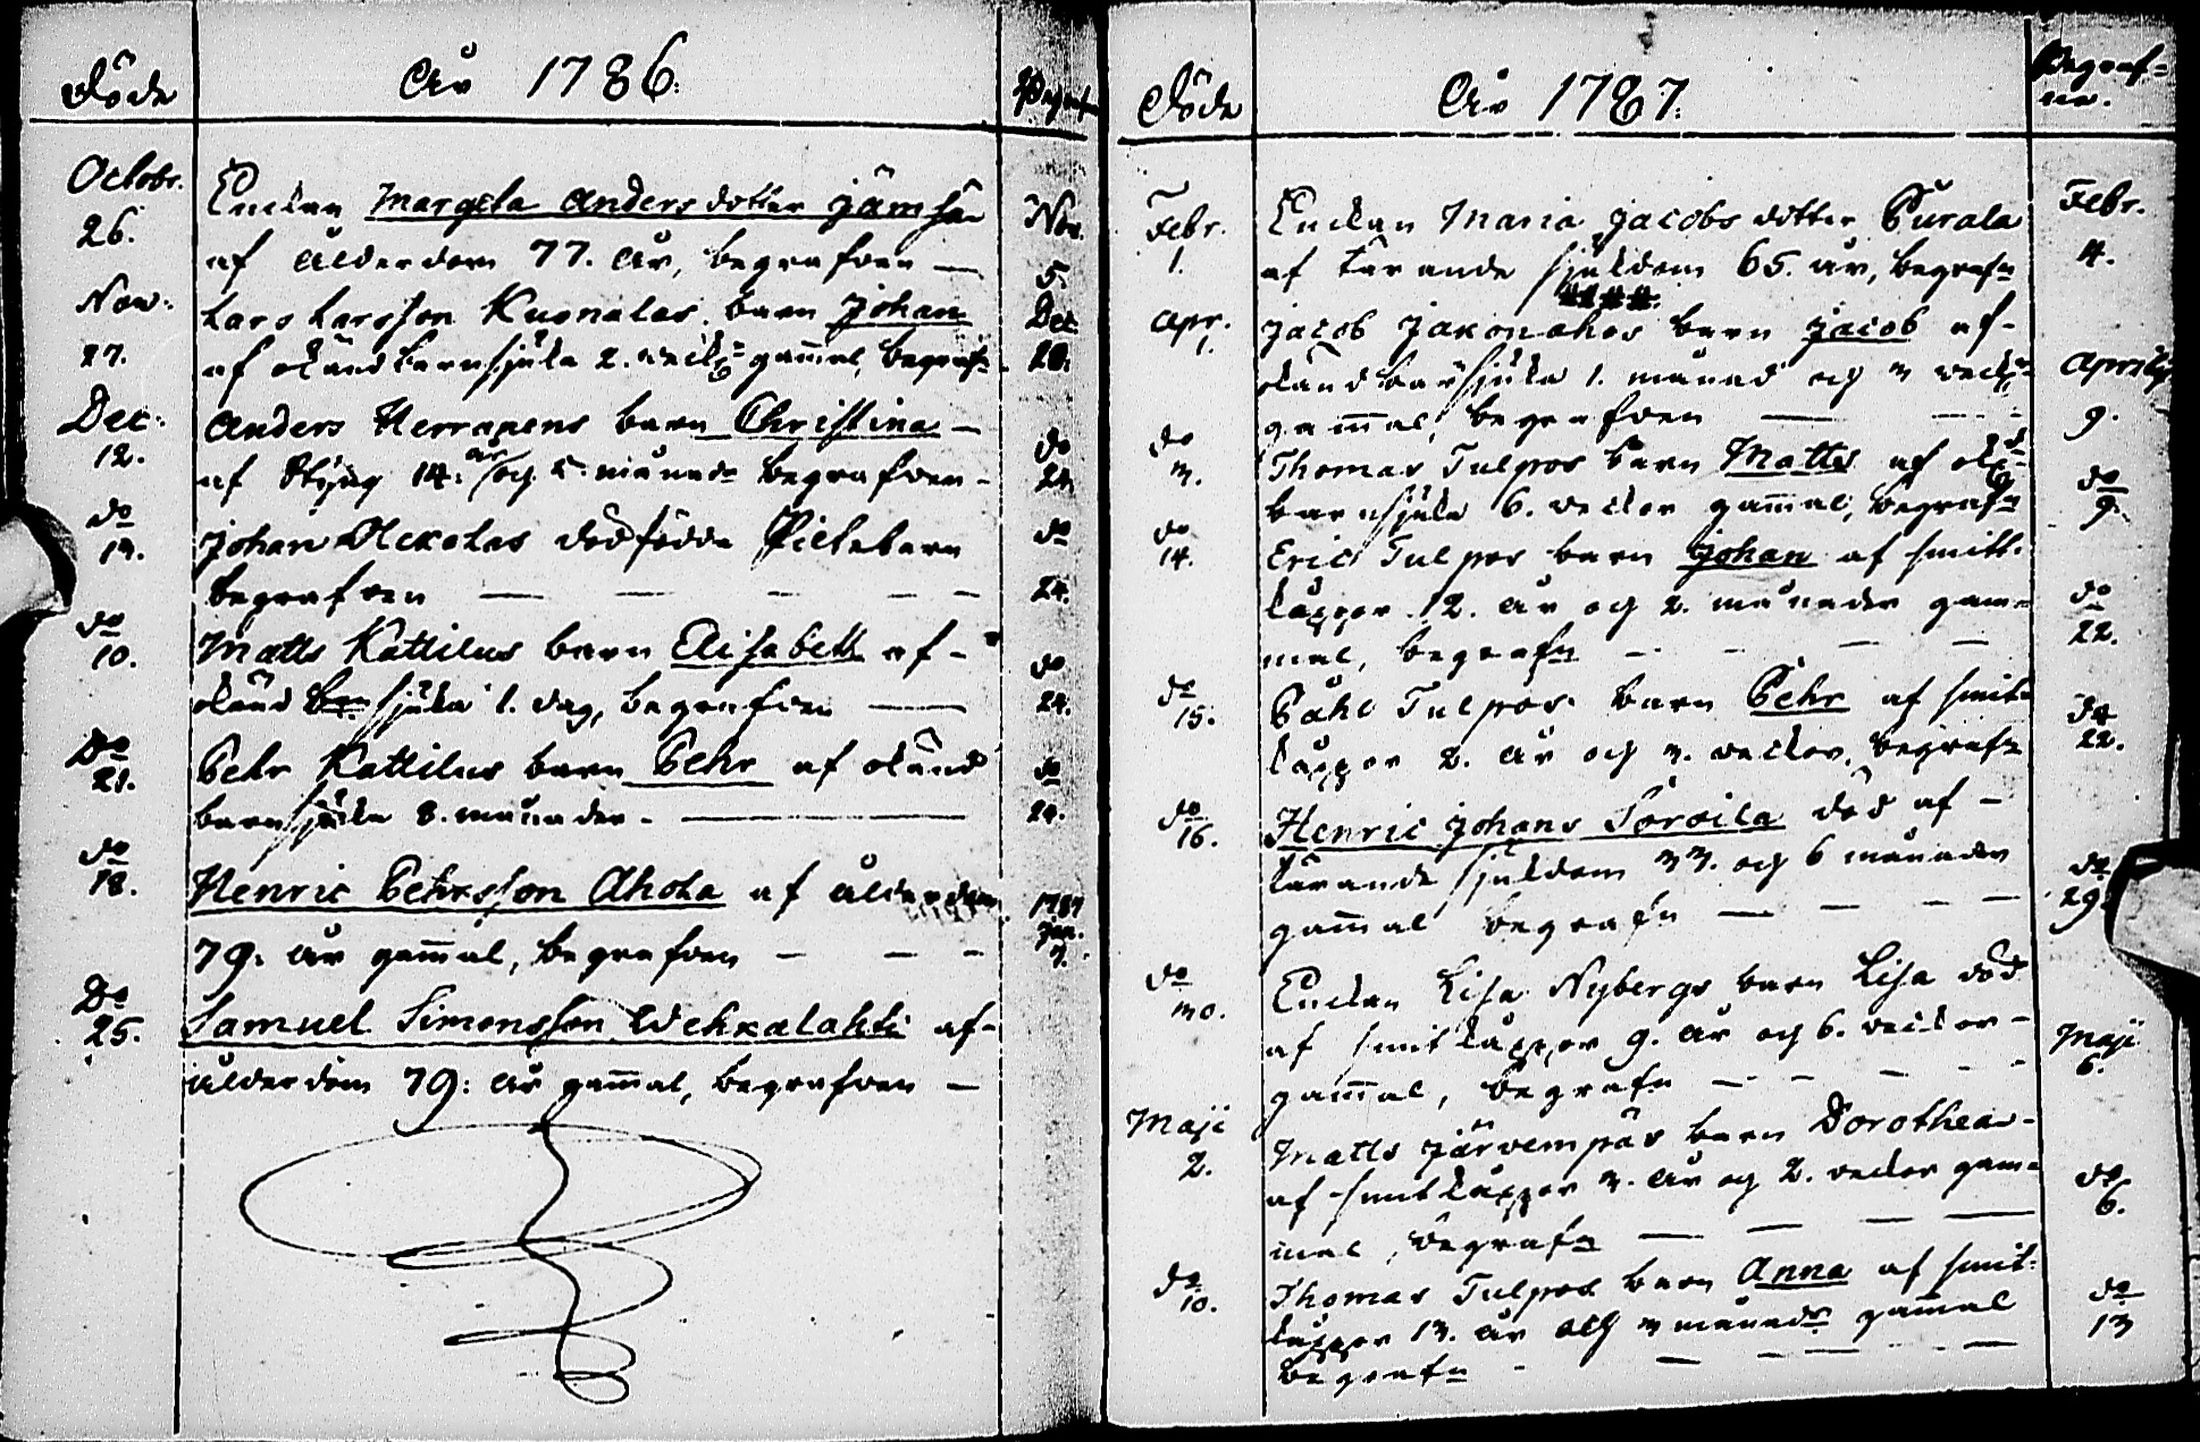 Döde
År 1786.
Begrafne
Octobr.
26.
Enckan Margeta Andersdotter Jämsä
af ålderdom 77. år, begrafven —
Nov.
5.
Nov.
27.
Lars Larsson Kuonalas barn Johan
af okänd barnsjuka 2. veck. gam̄al, begrafn
Dec.
Dec.
12.
Anders Herrapens barn Christina —
af Styng 14. år och 5. månadr begrafven —
do
24.
do
13.
Johan Olckolas dödfödda Pickebarn
begrafven — — — — —
do
24.
do
10.
Matts Kattilus barn Elisabeth af —
okänd sjuka 1. dag, begrafven —
do
24.
Do
21.
Pehr Kattilus barn Pehr af okänd
barnsjuka 8. månader. —
do
24.
do
18.
Henric Pehrsson Ahola af ålderdom
79. år gam̄al, begrafven — — —
1787
Jan.
Do
25.
Samuel Simonsson Wehkalahti af —
ålderdom 79: år gam̄al, begrafven —
Döde
År 1787.
Begraf=
ne.
Febr.
1.
Enckan Maria Jacobs dotter Purala
af tärande sjukdom 65. år, begrafn
Febr.
4.
Apr.
1.
Jacob Jakonahos barn Jacob af —
okänd barnsjuka 1. månad och 3 veck.
gam̄al, begrafven — —
Aprilis
9.
do
3.
Thomas Tulpos barn Matts af okd
barnsjuka 6. veckor gam̄al, begrafn
do
9.
do
14.
Eric Tulpos barn Johan af smitt=
kåppor 12. år och 2. månader gam=
mal, begrafn — — — —
do
22.
do
15.
Påhl Tulpos barn Pehr af smit=
kåppor 2. år och 3. veckor, begrafn
do
22.
do
16.
Henric Johans Torvila död af —
tärande sjukdom 33. och 6 månader
gam̄al begrafn — — — —
do
29.
do
30.
Enckan Lisa Nybergs barn Lisa död
af smitkåppor 9. år och 6. veckor —
gam̄al, begrafn — — — —
Maji
6.
Maji
2.
Matts Järvempäs barn Dorothea —
af smitkåppor 3. år og 2. veckor gam=
mal, begrafn — — — —
do
6.
do
10.
Thomas Tulpos barn Anna af smit=
kåppor 13. år och 3 månadr gam̄al
begrafn — — — —
do
13